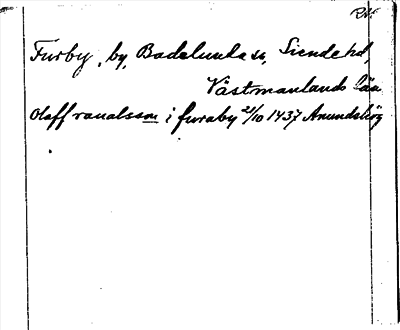 RA.
Furby, by, Badelunda sn, Siende hd,
Västmanlands län
Olaff ranalsson i furaby 21/10 1437 Anundshög